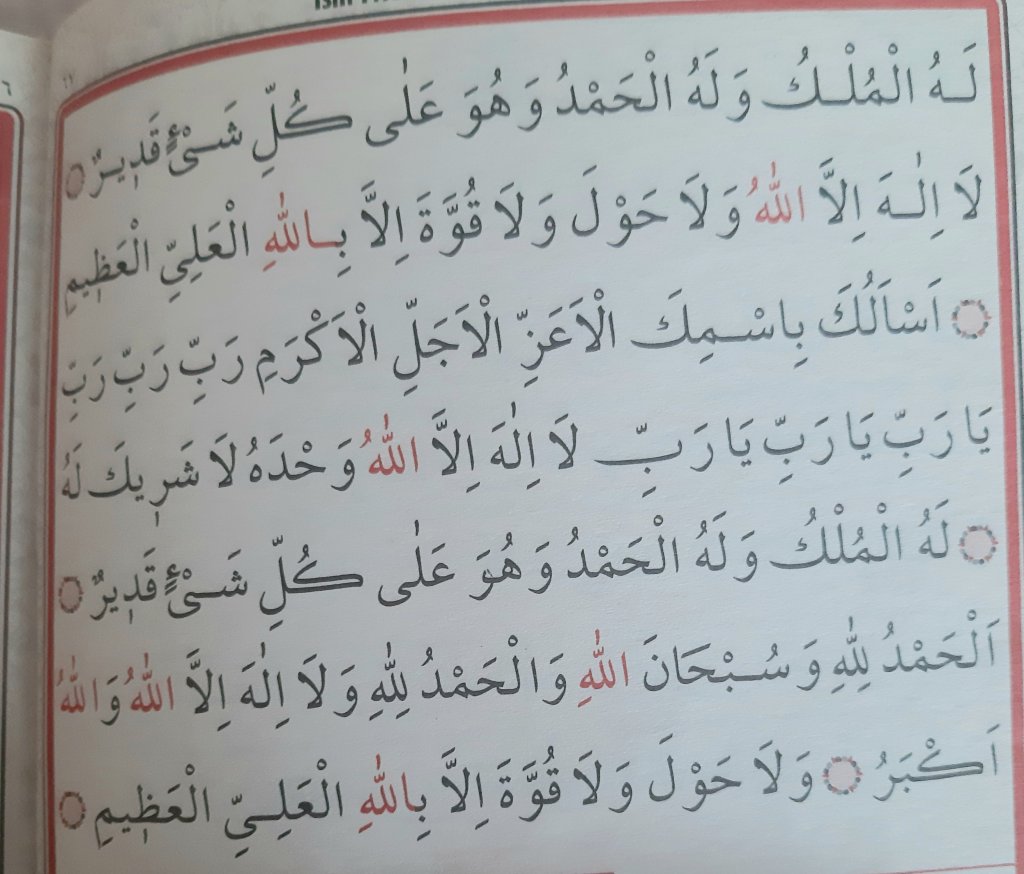 لَهُ الْمُلْكُ وَ لَهُ الْحَمْدُ وَ هُوَ عَلٰى كُلِّ شَىْءٍ قَدٖيرٌ
لَا اِلٰهَ اِلَّا اللّٰهُ وَ لَا حَوْلَ وَ لَا قُوَّةَ اِلَّا بِاللّٰهِ الْعَلِىِّ الْعَظٖيمِ
اَسْاَلُكَ بِاسْمِكَ الْاَعَزِّ الْاَجَلِّ الْاَكْرَمِ رَبِّ رَبِّ رَبِّ
يَا رَبِّ يَا رَبِّ يَا رَبِّ لَا اِلٰهَ اِلَّا اللّٰهُ وَحْدَهُ لَا شَرٖيكَ لَهُ
لَهُ الْمُلْكُ وَ لَهُ الْحَمْدُ وَ هُوَ عَلٰى كُلِّ شَىْءٍ قَدٖيرٌ
اَلْحَمْدُ لِلّٰهِ وَ سُبْحَانَ اللّٰهِ وَالْحَمْدُ لِلّٰهِ وَ لَا اِلٰهَ اِلَّا اللّٰهُ وَاللّٰهُ
اَكْبَرُ وَ لَا حَوْلَ وَ لَا قُوَّةَ اِلَّا بِاللّٰهِ الْعَلِىِّ الْعَظٖيمِ